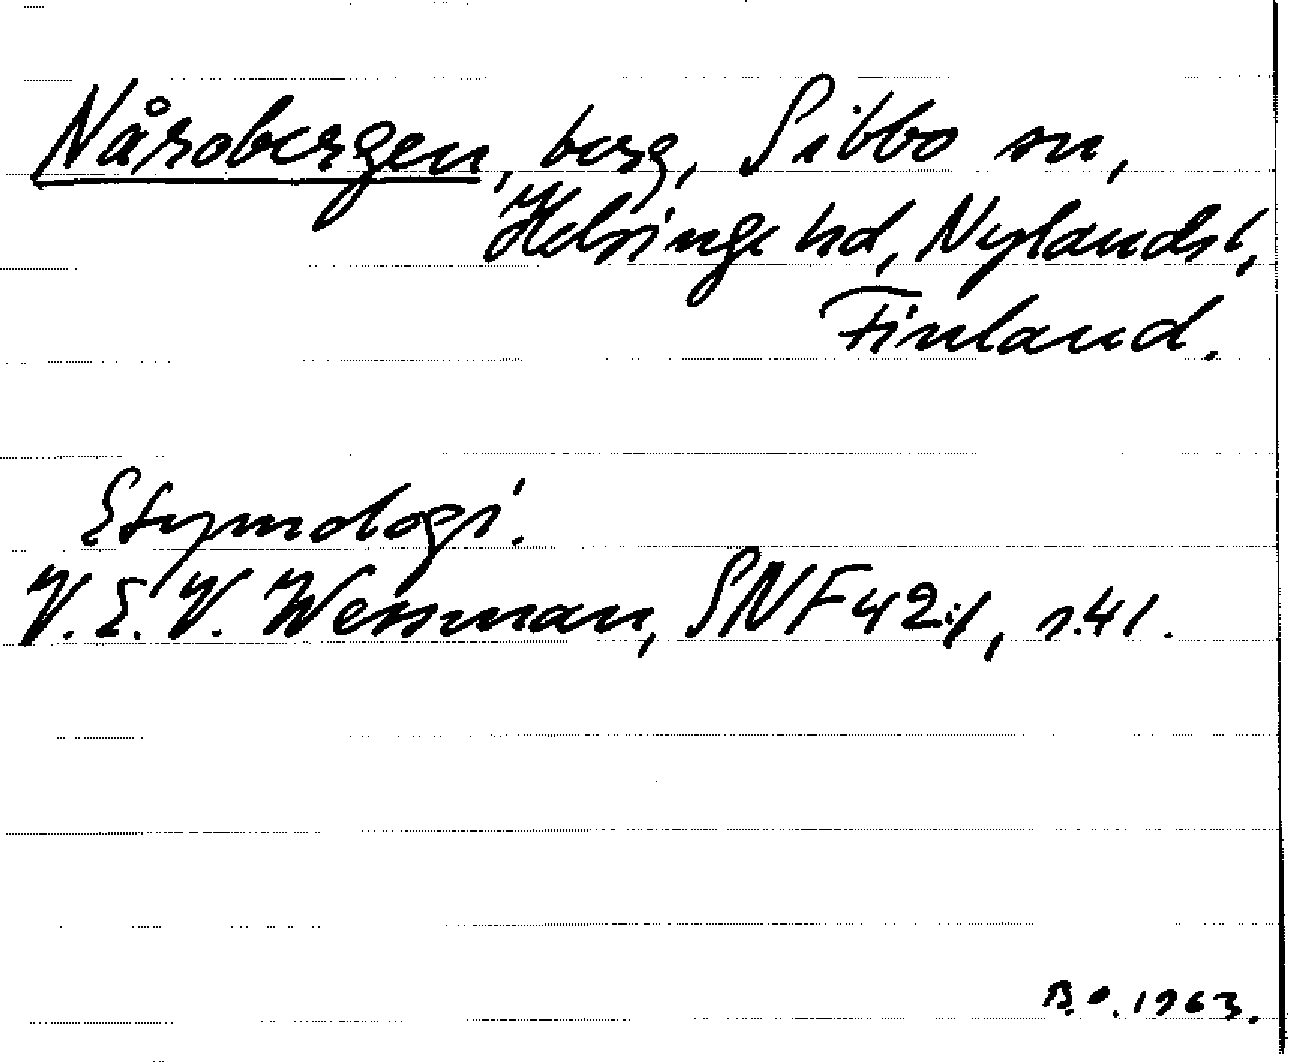 Nårobergen, berg, Sibbo sn,
Helsinge hd, Nylands l,
Finland.
Etymologi.
V. E. V. Wessman, SNF 42:1, s. 41.
B. O. 1963.